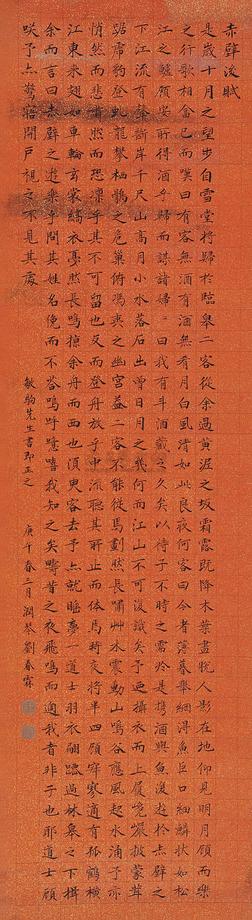 赤壁後賦
是歲十月之望步自雪堂將歸於臨皋二客從余過黃泥之坂霜露既降木葉盡脫人影在地仰見明月顧而樂
之行歌相答已而嘆曰有客無酒有酒無肴月白風清如此良夜何客曰今者薄暮舉網得魚巨口細鱗狀如松
江之鱸顧安所得酒乎歸而謀諸婦婦曰我有斗酒藏之久矣以待子不時之需於是攜酒與魚復遊於赤壁之
下江流有聲斷岸千尺山高月小水落石出曾日月之幾何而江山不可復識矣予迺攝衣而上履巉巖披蒙茸
踞虎豹登虬龍攀栖鶻之危巢俯馮夷之幽宮蓋二客不能從焉劃然長嘯艸木震動山鳴谷應風起水涌予亦
悄然而悲肅然而恐凜乎其不可留也反而登舟放乎中流聽其所止而休焉時夜將半四顧寂寥適有孤鶴橫
江東來翅如車輪玄裳縞衣戛然長鳴掠余舟而西也須臾客去予亦就睡夢一道士羽衣翩躚過臨皋之下揖
余而言曰赤壁之遊樂乎問其姓名俛而不答嗚呼噫嘻我知之矣疇昔之夜飛鳴而過我者非子也耶道士顧
笑予亦驚寤開戶視之不見其處
敏駒先生書即正之 庚午春三月潤琴劉春霖